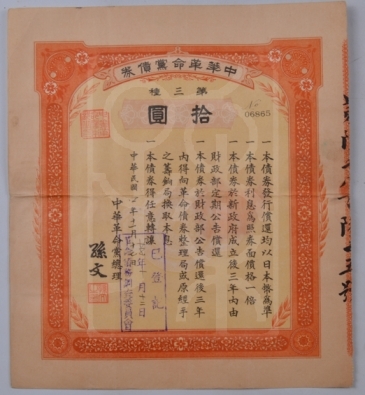 中華革命黨債券
第三種
拾圓
06865
一本債券發行償還均以日本幣為準
一本債券利息為照券面價格一倍
一本債券於新政府成立後三年內由
財政部定期公告償還
一本債券於財政部公告償還後三年
內得向革命債券整理局或原經手
之籌餉局換取本息
一本債券得任意轉讓
中華民國 年十二月 日
中華革命黨總理
孫文
已登記